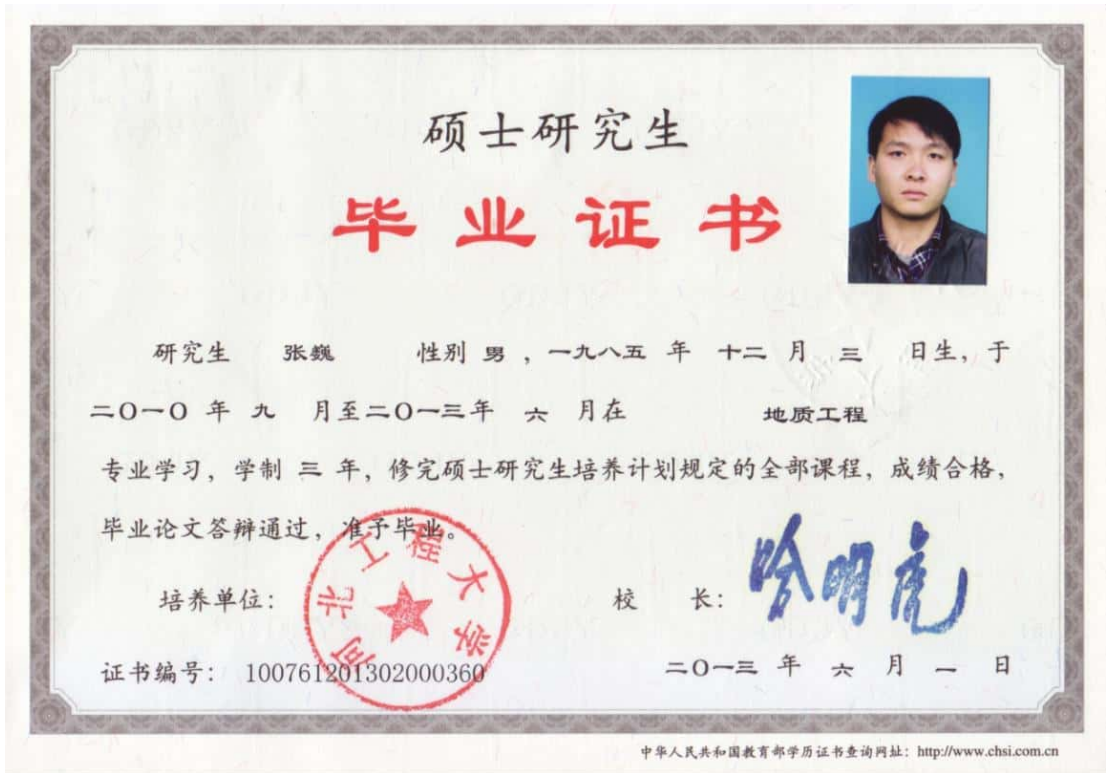 硕士研究生
毕业证书
研究生 张巍 性别 男 ，一九八五 年 十二 月 三 日生，于
二〇一〇 年 九 月至二〇一三年 六 月在 地质工程
专业学习，学制 三 年，修完硕士研究生培养计划规定的全部课程，成绩合格，
毕业论文答辩通过，准予毕业。
河北工程大学
培养单位：
校 长：哈明虎
证书编号：100761201302000360
二〇一三 年 六 月 一 日
中华人民共和国教育部学历证书查询网址：http://www.chsi.com.cn